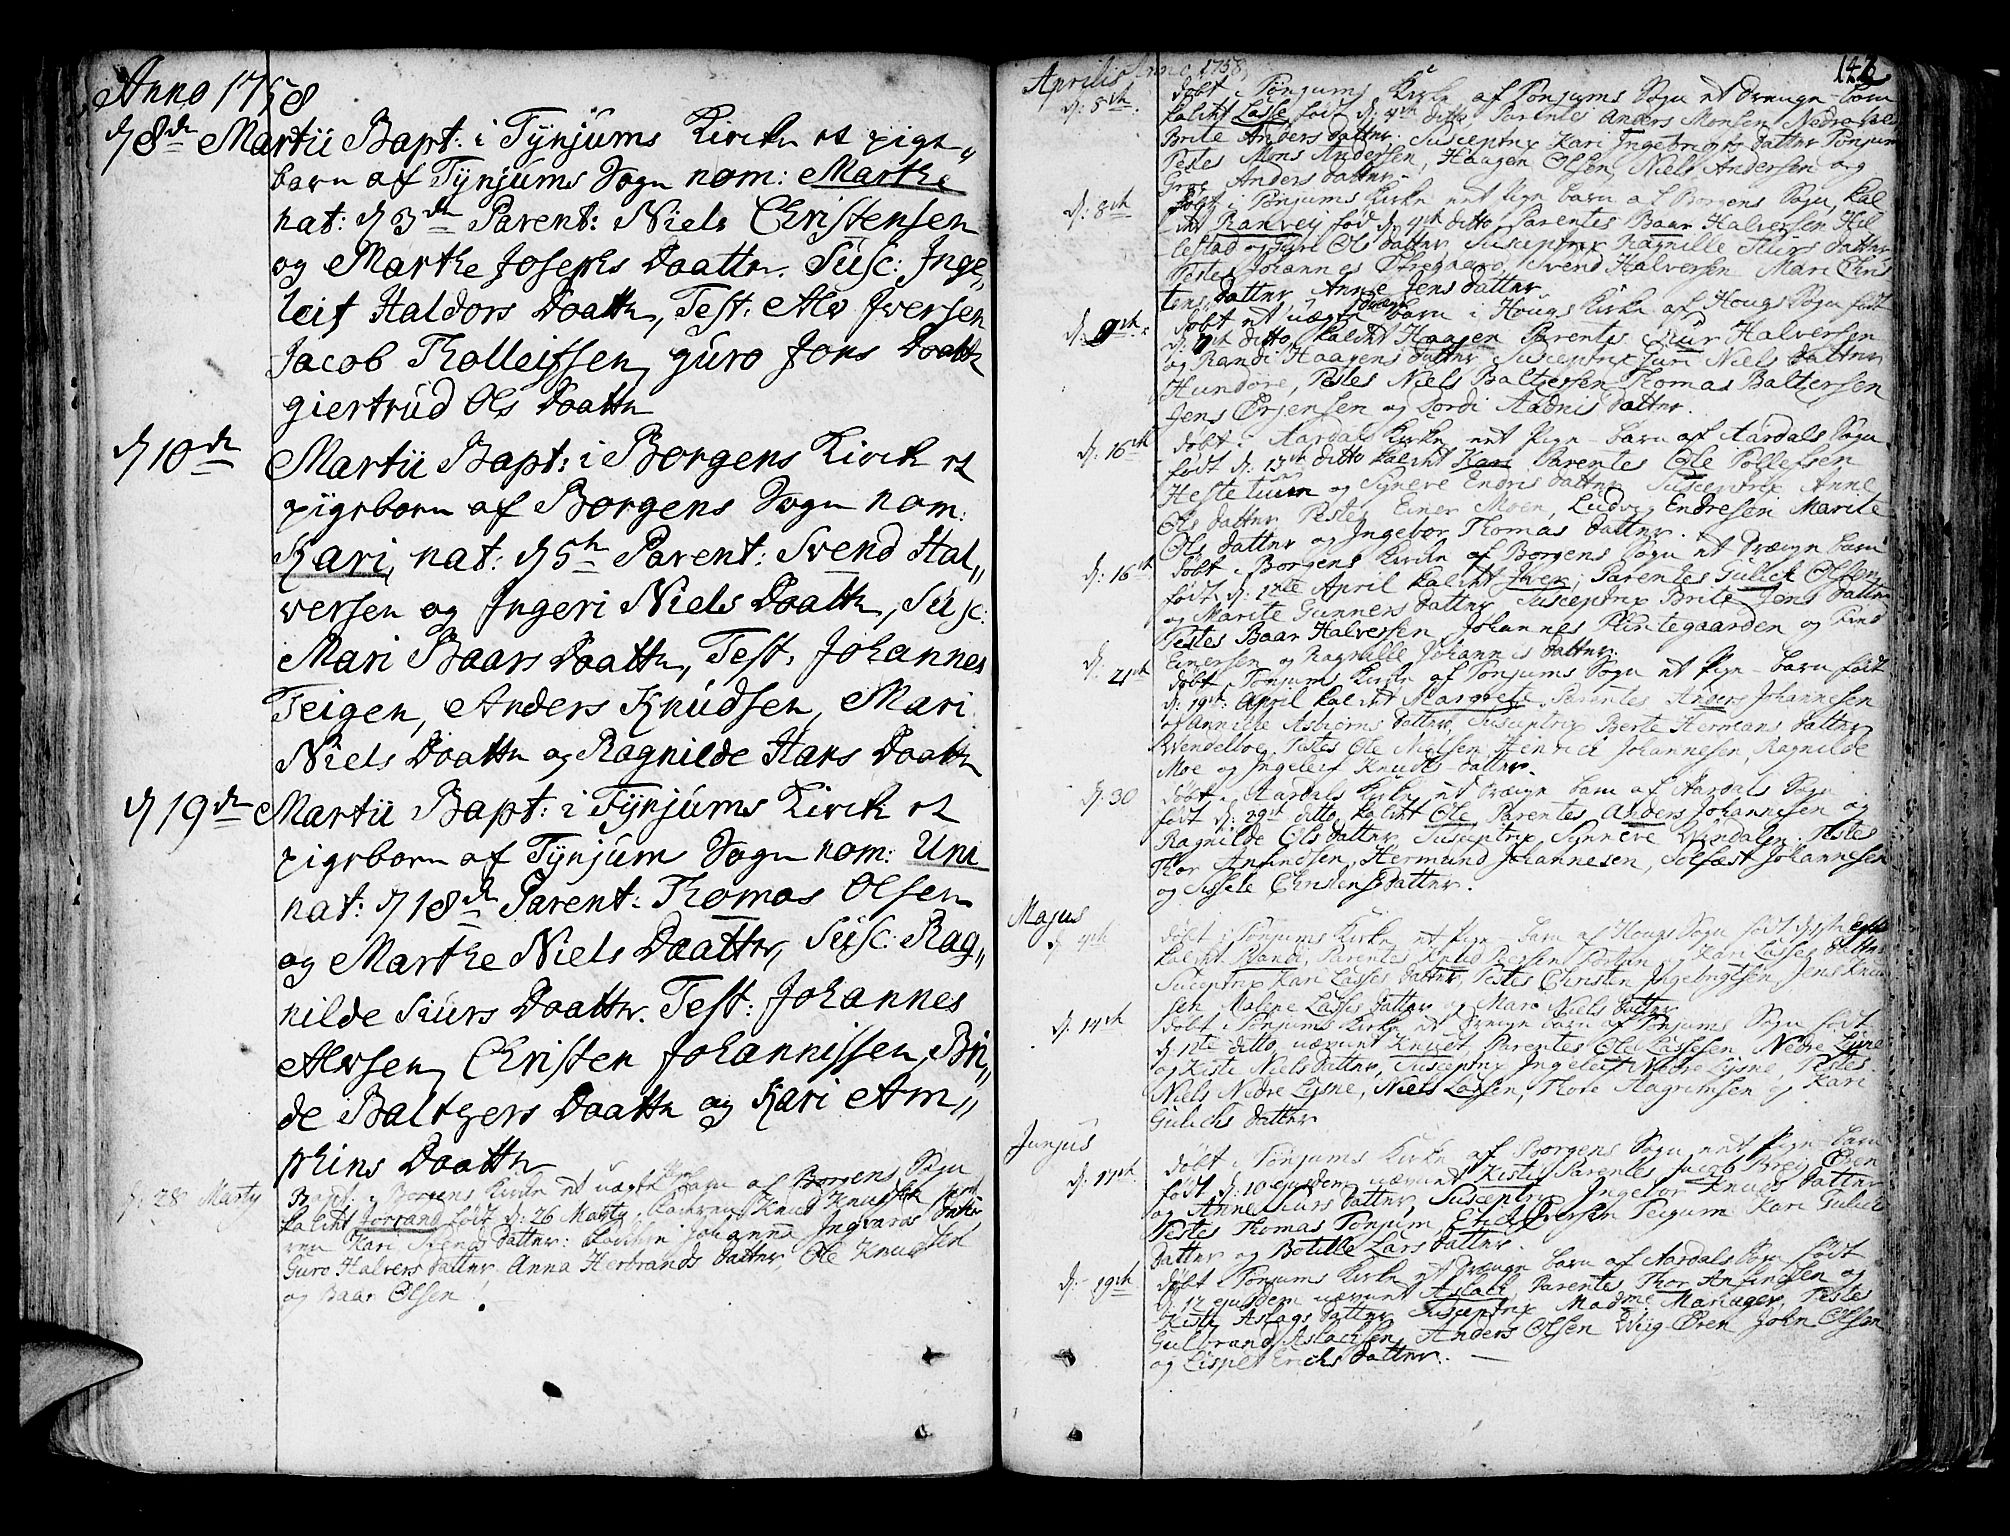 Anno 1758
d 8de Martii Bapt: i Tÿnjums Kirche et pige
barn af Tÿnjums Sogn nom: Marthe
nat: d 3de Parent: Niels Christensen
og Marthe Josephs Daatter. Susc: Inge,,
leif Haldors Daatter, Test: Alv Iversen
Jacob Tholleifssen, guro Jons Daatter
giertrud Ols Daatter
d 10de Martii Bapt: i Borgens Kirche et
pigebarn af Borgens Sogn nom:
Kari, nat: d 5te Parent: Svend Hal,,
versen og Ingeri Niels Daatter, Susc:
Mari Baars Daatter, Test: Johannes
Teigen, Anders Knudsen, Mari
Niels Daatter og Ragnilde Hans Daatter
d 19de Martii Bapt: i Tÿnjums Kirche et
pigebarn af Tÿnjum Sogn nom: Uni
nat: d 18de Parent: Thomas Olsen
og Marthe Niels Daatter, Susc: Rag,,
nilde Siurs Daatter. Test: Johannes
Alvsen, Christen Johannissen, Bri,,
de Baltzers Daatter og Kari Am,,
phins Daatter
d. 28 Marty Bapt. i Borgens Kirke et uægte barn af Borgens Sogn
kaldet Jorrand født d: 26 Marty, Knud Knudsen
Kari Svends datter: Johanna Ingvaras
Guro Halvers datter, Anna Herbrands datter, Ole Knudsen
og Baar Olsen
Aprilis Anno 1758
146
d: 8th. døbt i Tønjums Kirke af Tønjums Sogn et Drenge-barn
kaldt Lasse født d: 4th ditto Parentes Anders Monsen Nedre
Brite Anders datter. Susceptrix Kari Ingebrigts datter Tønjum
Testes Mons Andersen, Haagen Olsen, Niels Andersen og
Groe Anders datter.
d: 8th døbt i Tønjums Kirke et Pige barn af Borgens Sogn, kal
det Ranvei fød d: 4th ditto, Parentes Baar Halversen Hil
lestad og Gyri Ols datter, Susceptrix Ragnille Siurs datter
Testes Johannes, Svend Halversen Mari Chris
tens datter, Anne Jens datter.
d: 9th. døbt et uægte drenge barn i Hougs Kirke af Hougs Sogn født
d: 7th ditto, kaldet Haagen Parentes Siur Halversen
og Randi Haagens datter Susceptrix Siri Niels datter
Hundøre, Testes Niels Baltzersen Thomas Baltersen
Jens Ørjensen og Dordi Aadnis datter.
d: 16th døbt i Aardals Kirke et Pige-barn af Aardals Sogn
født d: 13th ditto kaldet Kari Parentes Ole Tollefsen
Hestetuun og Synneve Endris datter Susceptrix Anne
Ols datter, Testes Einer Moen, Ludvig Endresen Marite
Ols datter og Ingebor Thomas datter.
d: 16th døbt i Borgens Kirke af Borgens Sogn et Drænge barn
født d: 12te April kaldet Iver, Parentes Gullick Olsen
og Marite Gunners datter Susceptrix Brite Jens datter
Testes Baar Halversen, Johannes Plintegaarden og
Einersen og Ragnille Johannis datter.
d: 21th døbt i Tønjums Kirke af Tønjums Sogn et Pige-barn født
d: 19th April kaldet Margrete, Parentes Anders Johannesen
og Annicke Asbiørns datter, Susceptrix Berte Hermans datter
Testes Ole Nielsen, Henrich Johannesen, Ragnilde
Moe og Ingeleif Knuds datter.
d: 30 døbt i Aardals Kirke et Drenge barn af Aardals Sogn
født d: 29st ditto, kaldet Ole, Parentes Anders Johannesen og
Ragnilde Ols datter Susceptrix Synneve Testes
Thor Anfindsen, Hermund Johannesen, Solfæst Johannesen
og Sissele Christens datter.
Majus
d: 4th døbt i Tønjums Kirke et Pige barn af Hougs Sogn født
kaldet Randi, Parentes Knud Peersen og Kari Lasses datter
Susceptrix Kari Lasses datter, Testes Christen Jens Knud
sen Malene Lasses datter og Mari Niels datter
d: 14th døbt i Tønjums Kirke et Drenge barn af Tønjums Sogn født
d: 1te ditto nævnt Knudt, Parentes Ole Lassesen, Nedre Lysne
og Kisti Niels datter, Susceptrix Ingeleif Nedre Lysne, Testes
Niels Nedre Lysne, Niels Lassen, Thore Aagrimsen og Kari
Gulichs datter
Junjus
d: 11th døbt i Tønjums Kirke af Borgens Sogn et Pige-barn
født d: 10 ejusdem nævnet Kisti Parentes Jacob Øren
og Anne Siurs datter, Susceptrix Ingebor Knuds datter
Testes Thomas Tønjum, Erich Iversen Teigum Kari Gulichs
datter og Botille Lars datter.
d: 19th døbt i Tønjums Kirke et Drænge barn af Aardals Sogn født
d: 12 ejusdem nævnet Aslack, Parentes Thor Anfindsen og
Kisti Aslags datter, Susceptrix Madme Mariager, Testes
Gulbrand Aslachsen, Anders Olsen Wiig-Øren John Olsen
og Lispet Erichs datter.